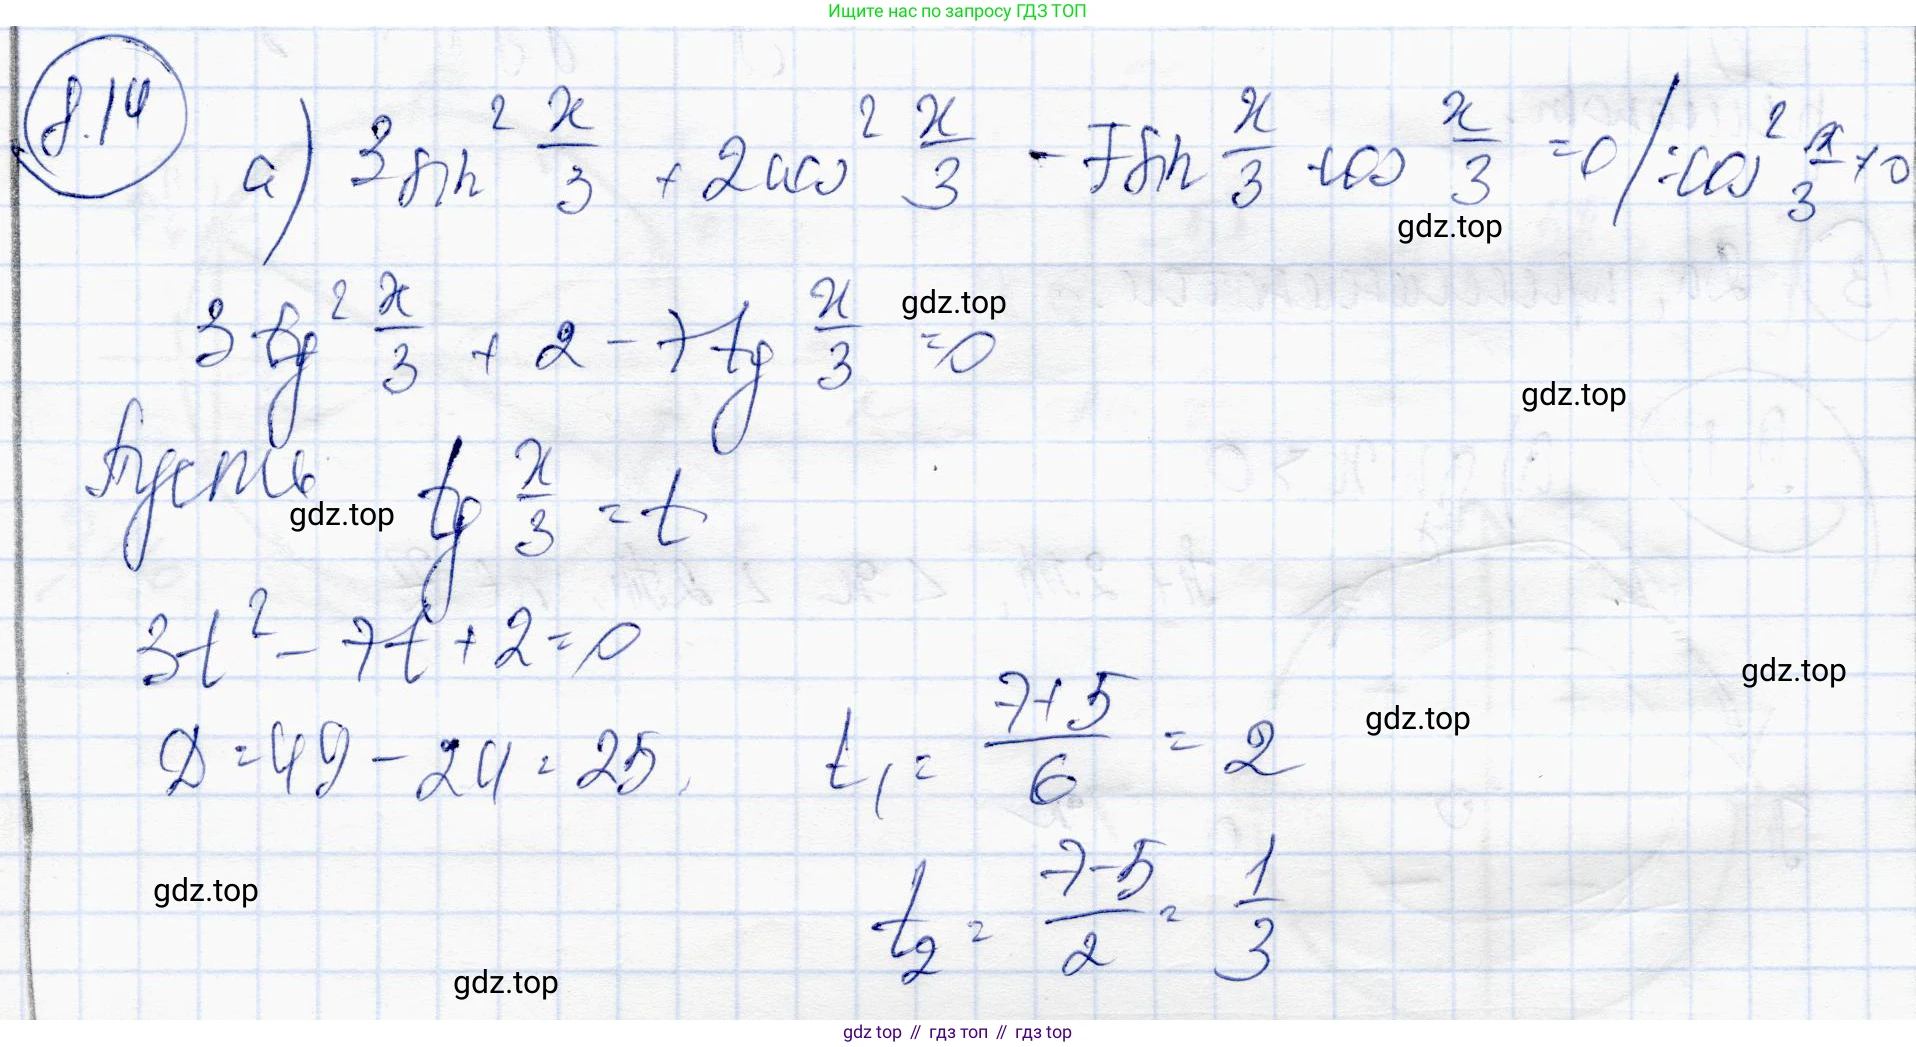 Ищите нас по запросу ГДЗ ТОП
8.14
а) 3sin² x/3 + 2cos² x/3 - 7sin x/3 · cos x/3 = 0 / : cos² x/3 ≠ 0
gdz.top
3tg² x/3 + 2 - 7tg x/3 = 0
gdz.top
gdz.top
Пусть tg x/3 = t
gdz.top
3t² - 7t + 2 = 0
gdz.top
D = 49 - 24 = 25, t₁ = (7+5)/6 = 2
gdz.top
t₂ = (7-5)/2 = 1/3
gdz.top
gdz.top
gdz top // гдз топ // гдз top